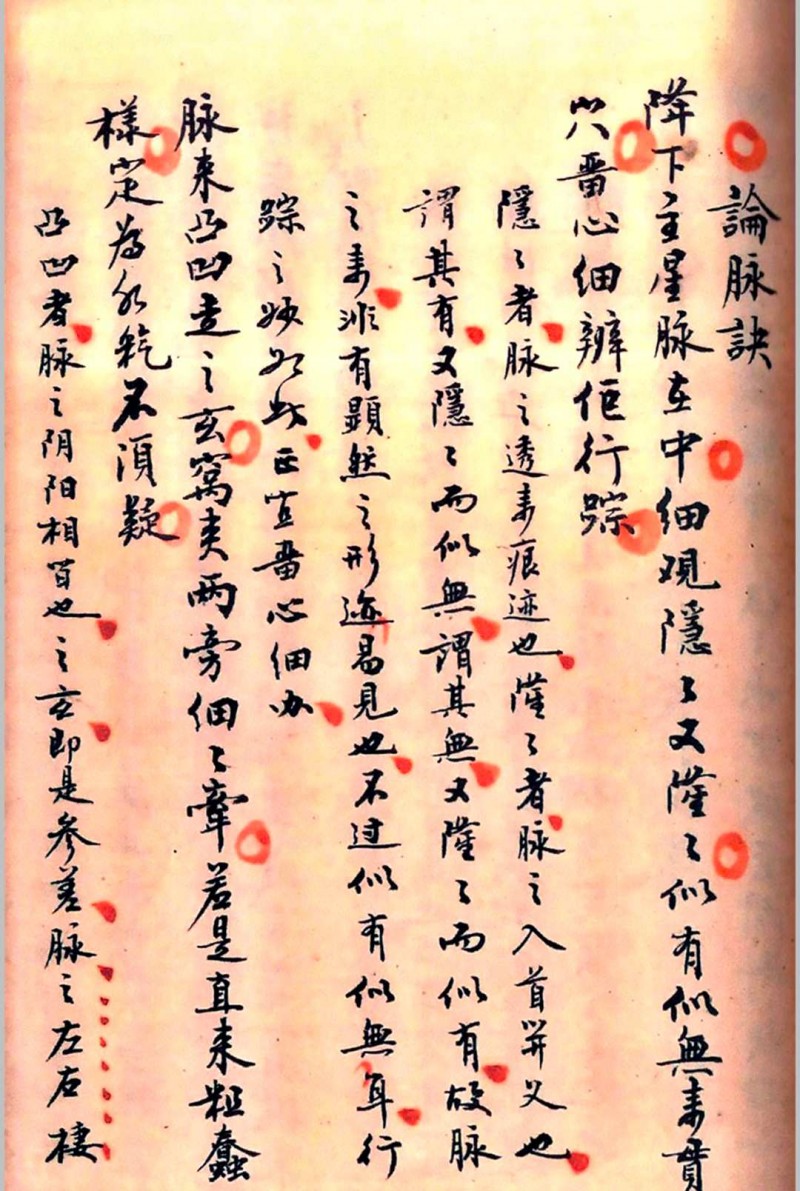 論脉訣
降下主星脉在中細現隱々又窿々似有似無来貫
穴畱心細辧伹行踪
隱々者脉之透来痕迹也窿々者脉之入首开义也
謂其有又隱々而似無謂其無又窿々而似有故脉
之来非有顕然之形迹易見也不过似有似無耳行
踪之妙如此正宜畱心細办
脉来凸凹走之玄窩夹两旁細々牽若是直来粗蠢
様定為水乾不須疑
凸凹者脉之阴阳相皆也之玄即是参差脉之左右棲